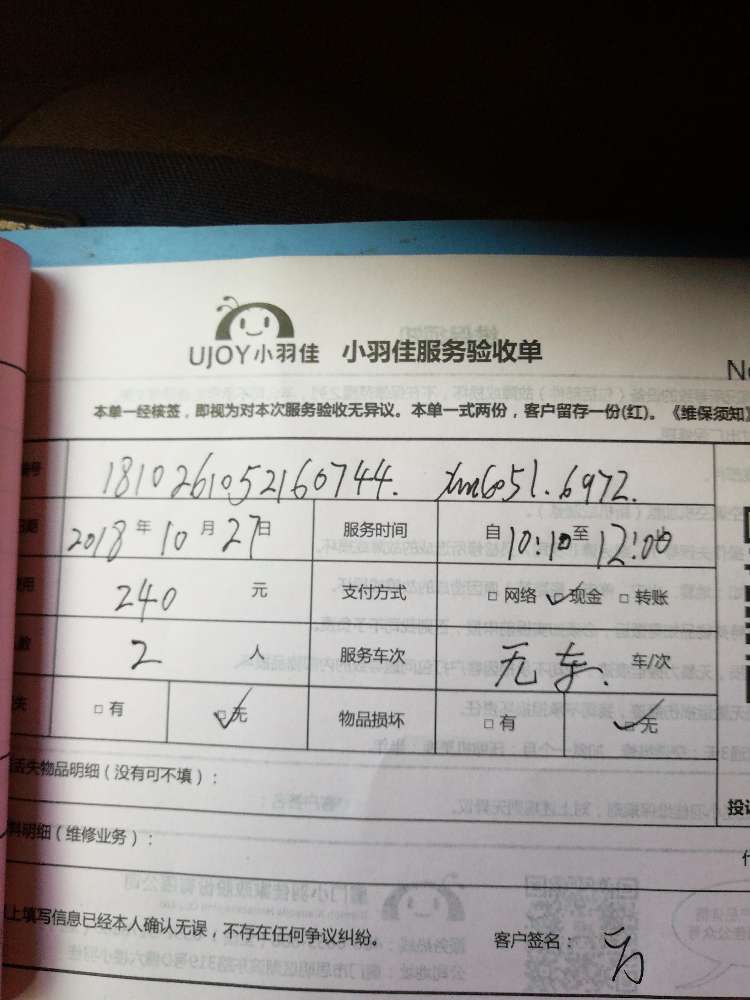 UJOY小羽佳 小羽佳服务验收单
No
本单一经核签，即视为对本次服务验收无异议。本单一式两份，客户留存一份(红)。《维保须知》
号 1810261052160744. xm6051.6972.
2018年10月27日 服务时间 自10:10至12:00
用 240 元 支付方式 □网络 ☑现金 □转账
数 2 人 服务车次 无车. 车/次
失 □有 ☑无 物品损坏 □有 ☑无
丢失物品明细（没有可不填）：
料明细（维修业务）：
上填写信息已经本人确认无误，不存在任何争议纠纷。 客户签名：
投